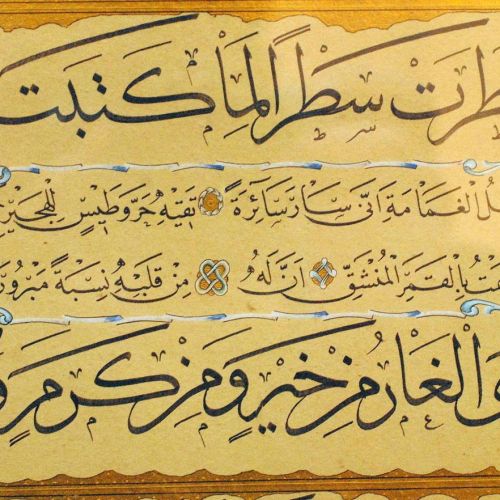 طرت سَطْرًا لِمَا كَتَبَتْ
ـلُ الغَمَامَةِ اَنّٰى سَارَ سَائِرَةً تَقِيْهِ حَرَّ وَطِيْسٍ لِلْهَجِيْرِ
ـمْتُ بِالْقَمَرِ الْمُنْشَقِّ اِنَّ لَهُ مِنْ قَلْبِهٖ نِسْبَةً مَبْرُورَ
ى الْغَارُ مِنْ خَيْرٍ وَمِنْ كَرَمٍ و